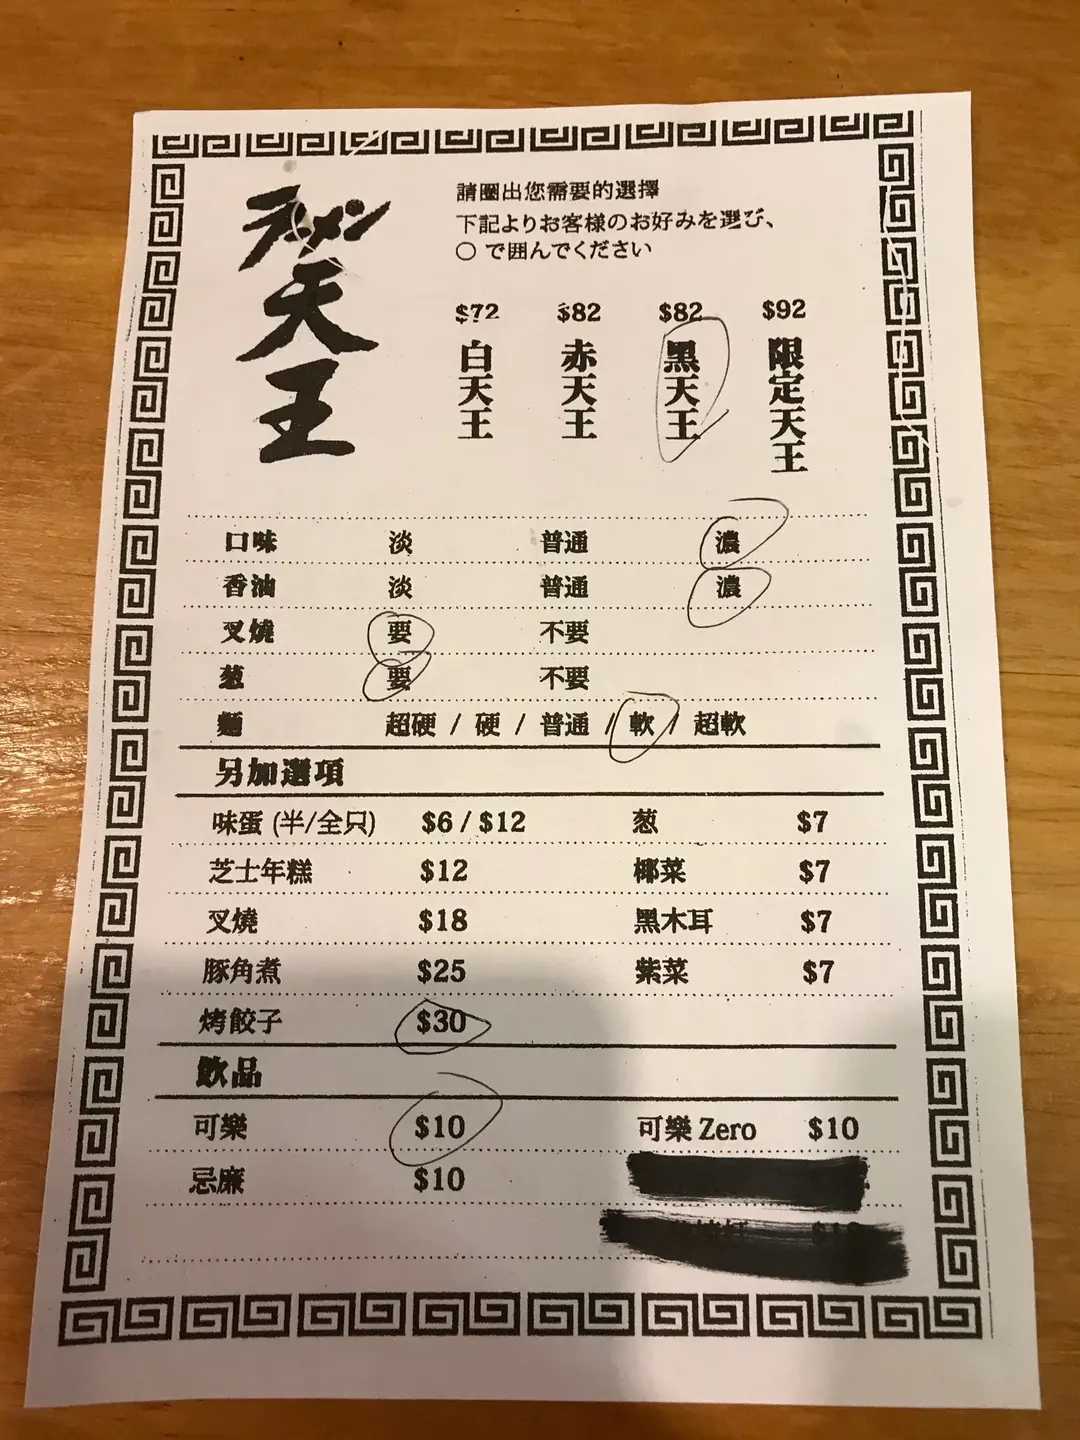 ラーメン
天
王
請圈出您需要的選擇
下記よりお客様のお好みを選び、
○ で囲んでください
$72 $82 $82 $92
白天王 赤天王 黑天王 限定天王
口味 淡 普通 濃
香油 淡 普通 濃
叉燒 要 不要
葱 要 不要
麵 超硬 / 硬 / 普通 / 軟 / 超軟
另加選項
味蛋 (半/全只) $6 / $12 葱 $7
芝士年糕 $12 椰菜 $7
叉燒 $18 黑木耳 $7
豚角煮 $25 紫菜 $7
烤餃子 $30
飲品
可樂 $10 可樂 Zero $10
忌廉 $10